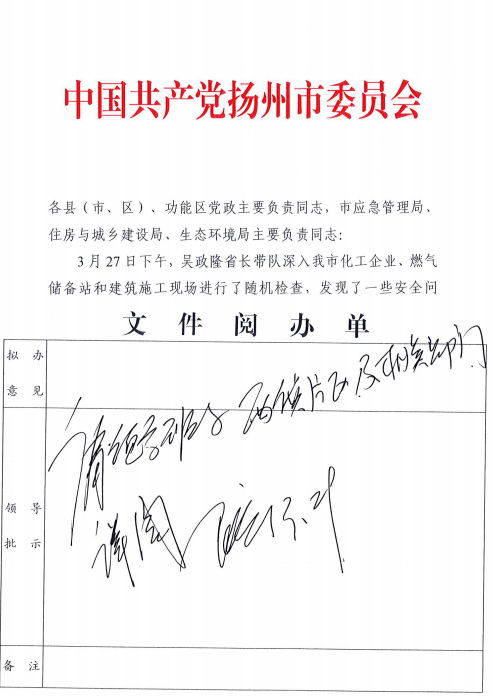 中国共产党扬州市委员会
各县（市、区）、功能区党政主要负责同志，市应急管理局、
住房与城乡建设局、生态环境局主要负责同志：
3月27日下午，吴政隆省长带队深入我市化工企业、燃气
储备站和建筑施工现场进行了随机检查，发现了一些安全问
文件阅办单
拟办
意见
请 及相关部门
领导
批示
阅
备注